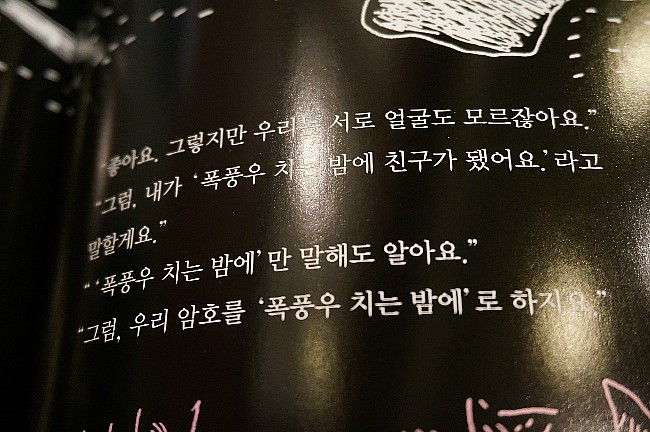 “좋아요. 그렇지만 우리는 서로 얼굴도 모르잖아요.”
“그럼, 내가 ‘폭풍우 치는 밤에 친구가 됐어요.’라고
말할게요.”
“‘폭풍우 치는 밤에’만 말해도 알아요.”
“그럼, 우리 암호를 ‘폭풍우 치는 밤에’로 하지요.”